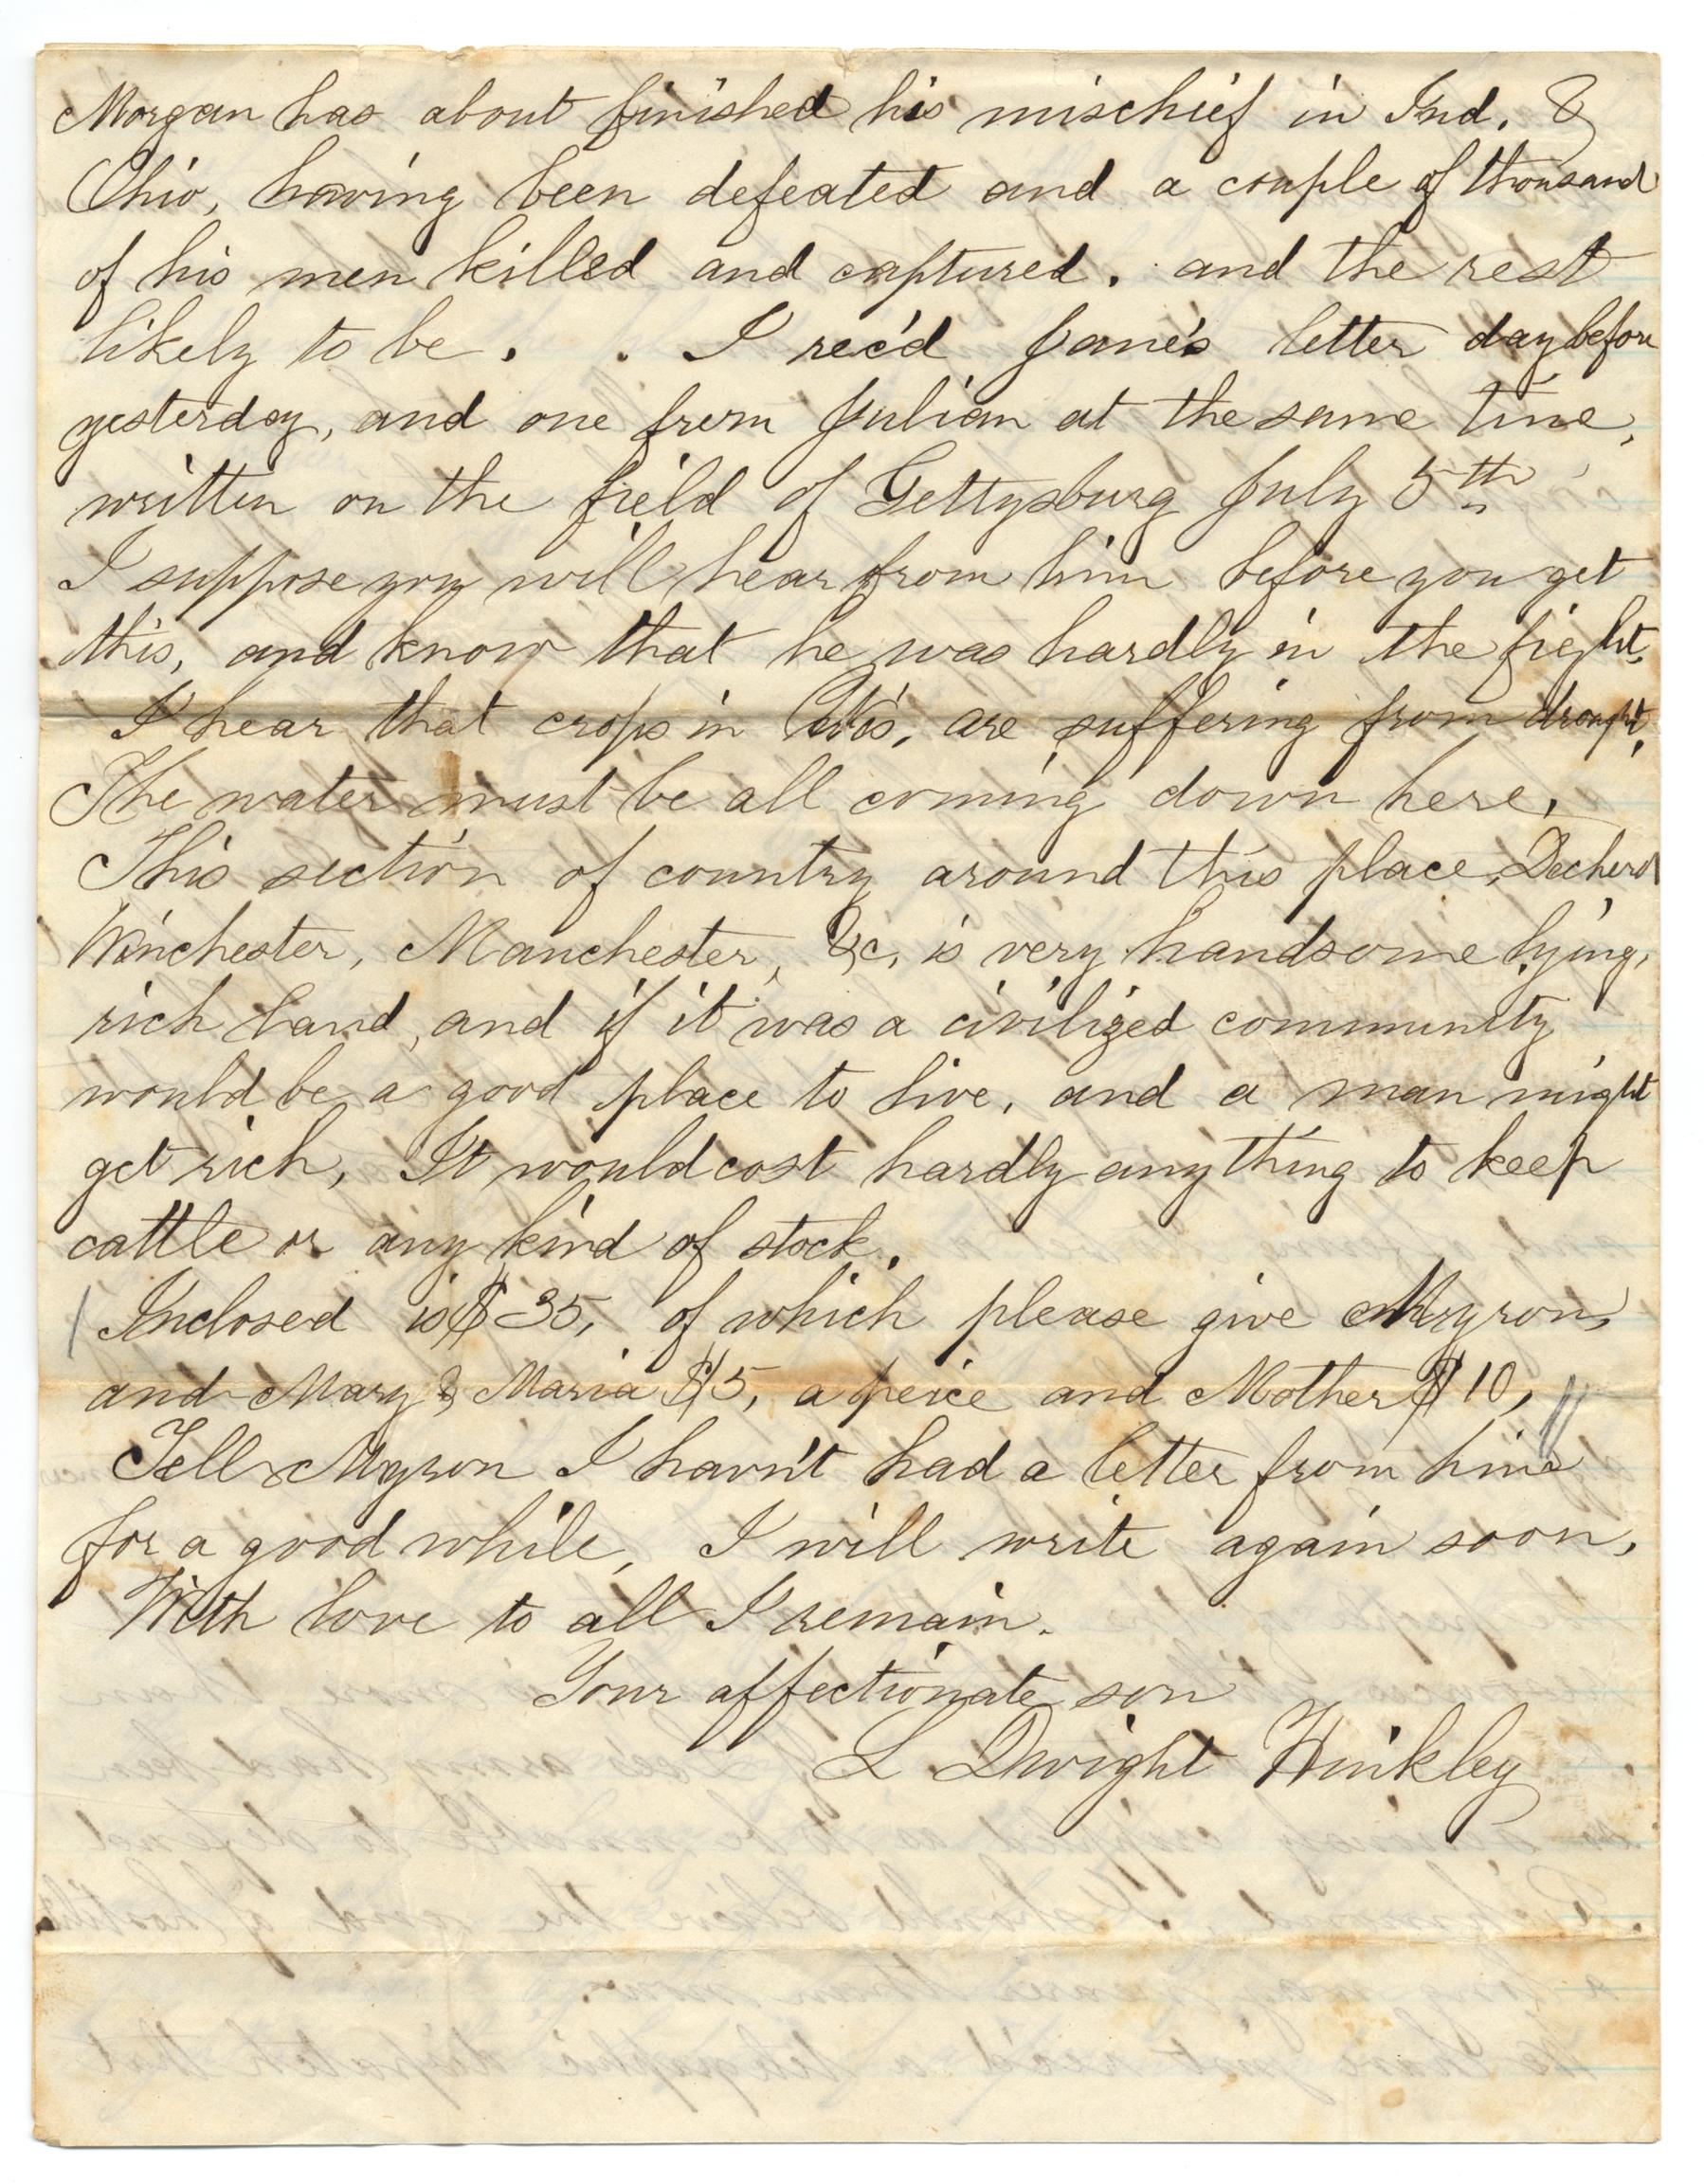 Morgan has about finished his mischief in Ind. &
Ohio, having been defeated and a couple of thousand
of his men killed and captured. and the rest
likely to be. . I rec'd Jane's letter day before
yesterday, and one from Julian at the same time,
written on the field of Gettysburg July 5th
I suppose you will hear from him before you get
this, and know that he was hardly in the fight,
I hear that crops in Wis, are suffering from drought,
The water must be all coming down here,
This section of country around this place, Decherd
Winchester, Manchester, &c, is very handsome lying,
rich land, and if it was a civilized community
would be a good place to live, and a man might
get rich, It would cost hardly anything to keep
cattle or any kind of stock.
Inclosed is $35, of which please give Myron,
and Mary & Maria $5, a peice and Mother $10,
Tell Myron I havn't had a letter from him
for a good while, I will write again soon,
With love to all I remain.
Your affectionate son
L Dwight Hinkley